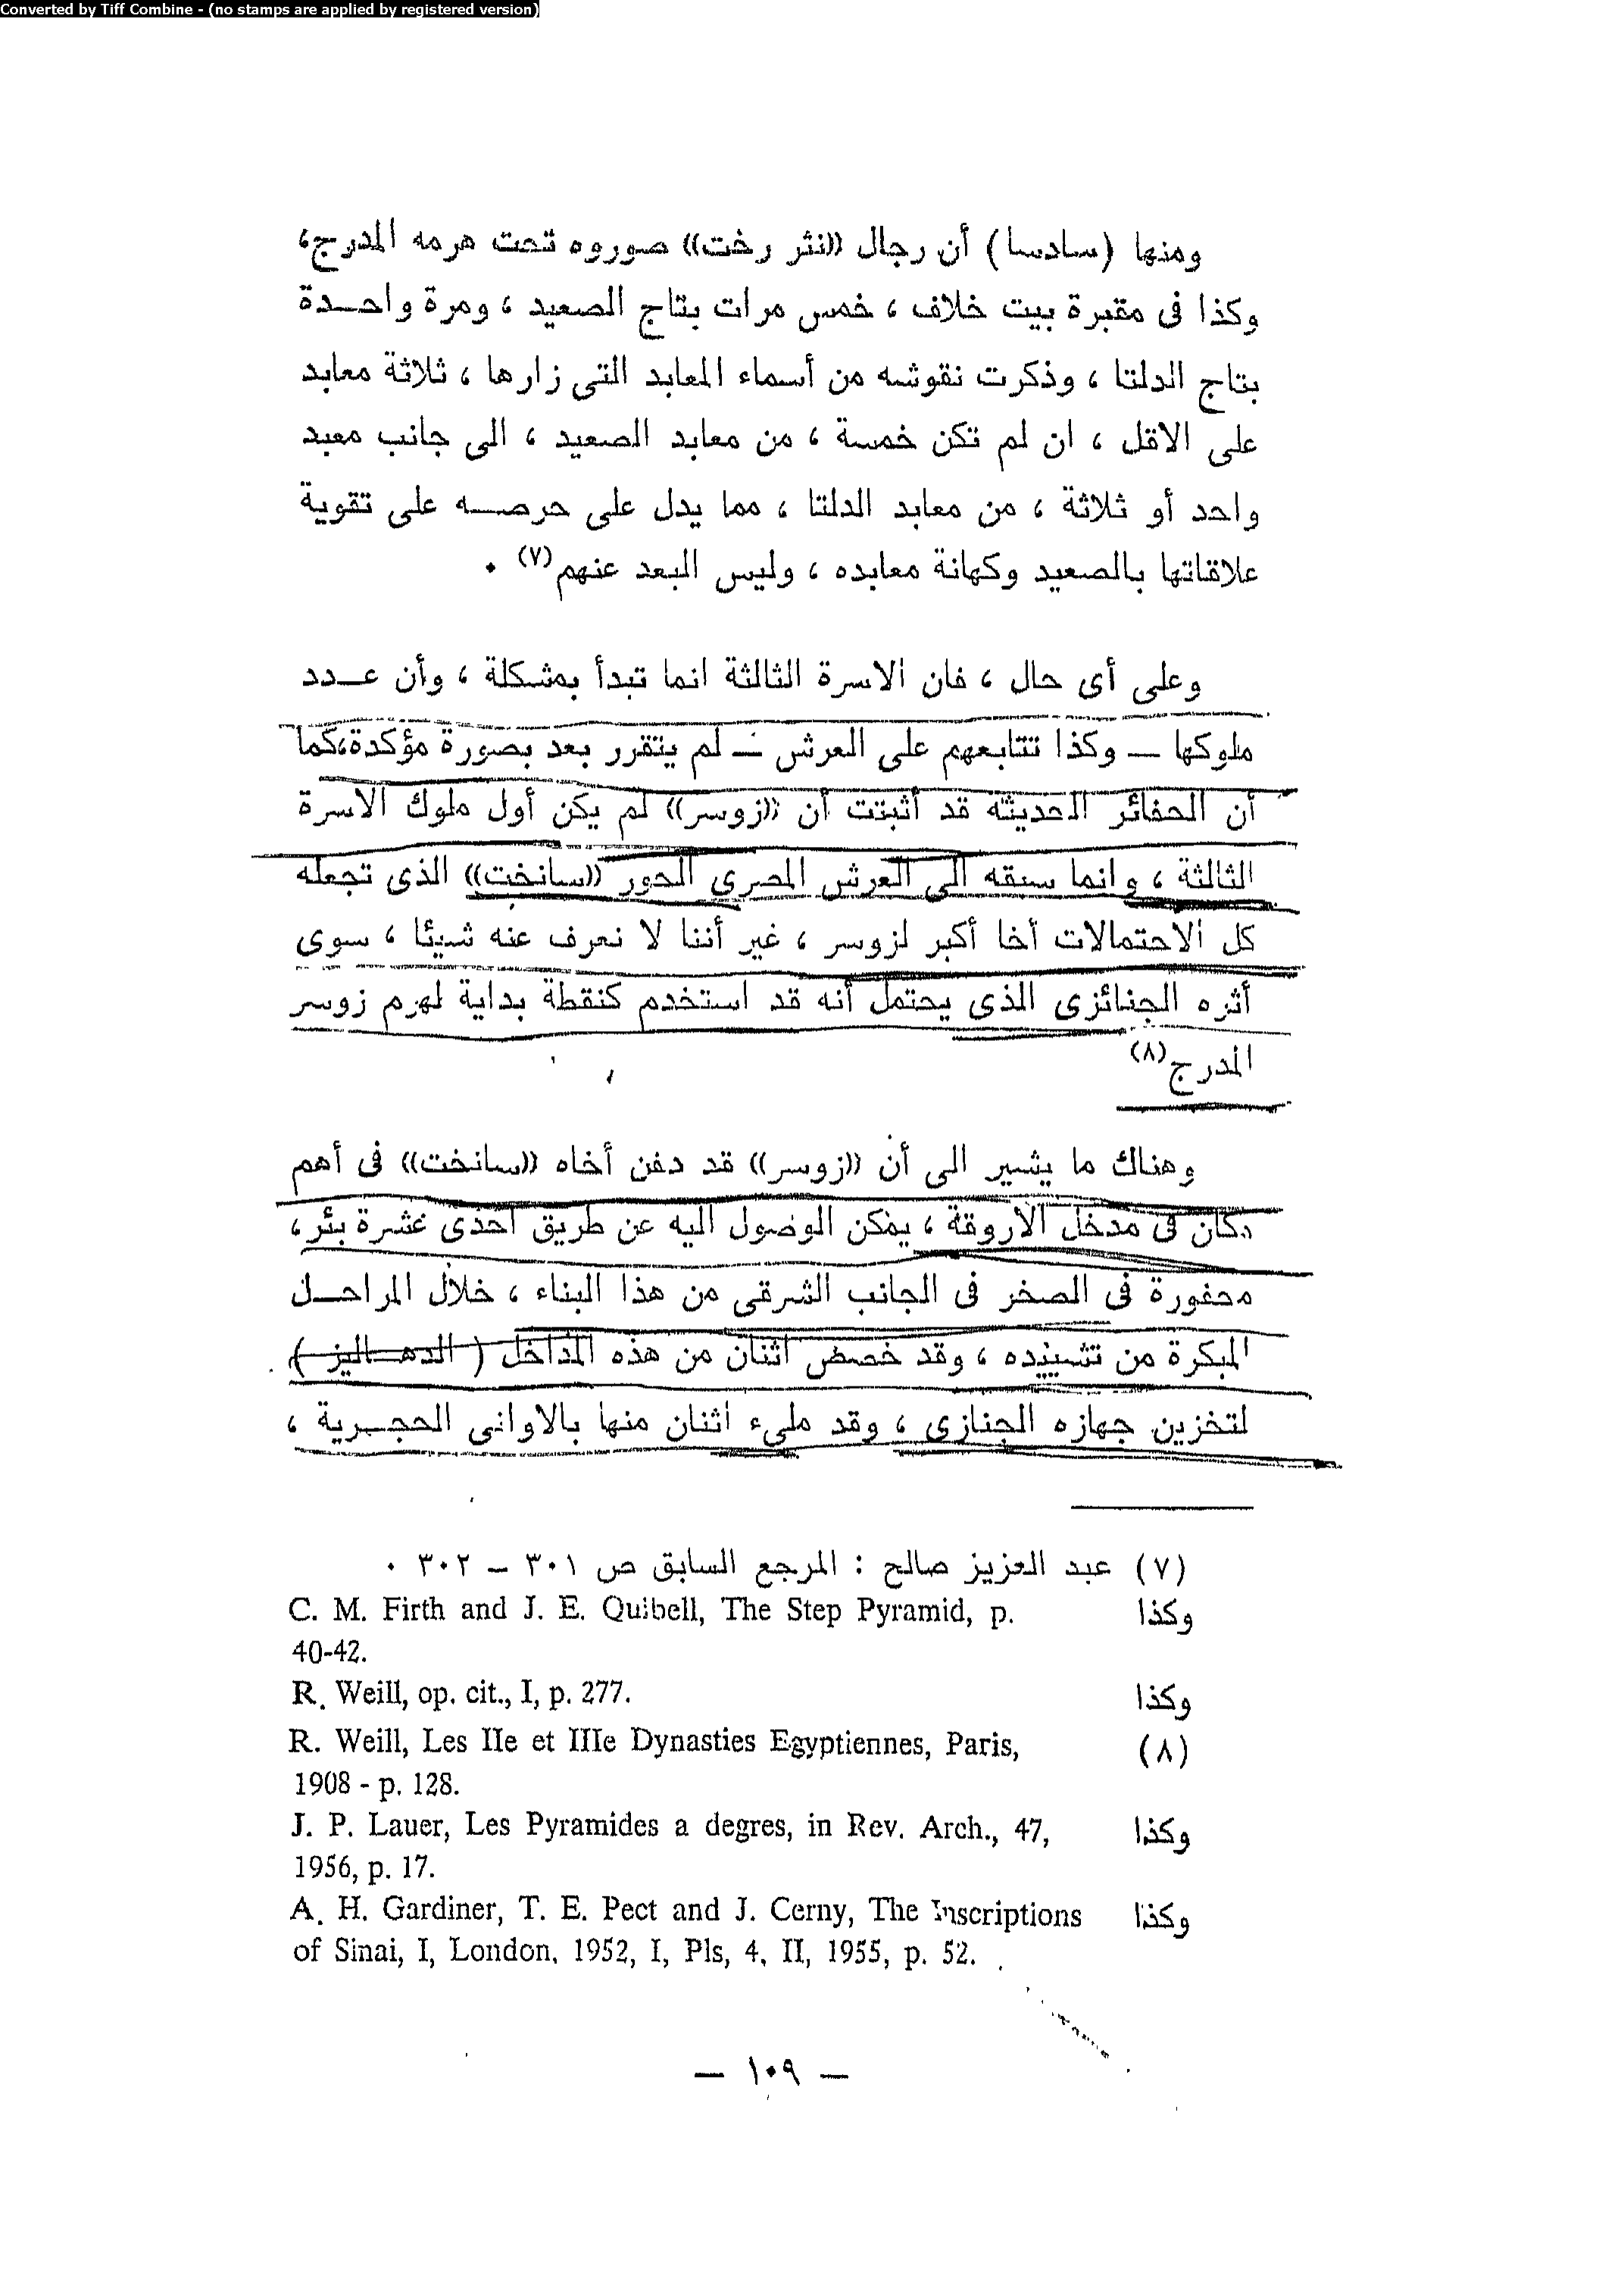 Converted by Tiff Combine - (no stamps are applied by registered version)
ومنها (سادسا) أن رجال «نثر رخت» صوروه تحت هرمه المدرج،
وكذا فى مقبرة بيت خلاف ، خمس مرات بتاج الصعيد ، ومرة واحـدة
بتاج الدلتا ، وذكرت نقوشه من أسماء المعابد التى زارها ، ثلاثة معابد
على الاقل ، ان لم تكن خمسة ، من معابد الصعيد ، الى جانب معبد
واحد أو ثلاثة ، من معابد الدلتا ، مما يدل على حرصـه على تقوية
علاقاتها بالصعيد وكهانة معابده ، وليس البعد عنهم(٧) .
وعلى أى حال ، فان الاسرة الثالثة انما تبدأ بمشكلة ، وأن عـدد
ملوكها — وكذا تتابعهم على العرش — لم يتقرر بعد بصورة مؤكدة،كما
أن الحفائر الحديثة قد أثبتت أن «زوسر» لم يكن أول ملوك الاسرة
الثالثة ، وانما سبقه الى العرش المصرى الحور «سانخت» الذى تجعله
كل الاحتمالات أخا أكبر لزوسر ، غير أننا لا نعرف عنه شيئا ، سوى
أثره الجنائزى الذى يحتمل أنه قد استخدم كنقطة بداية لهرم زوسر
المدرج(٨)
وهناك ما يشير الى أن «زوسر» قد دفن أخاه «سانخت» فى أهم
مكان فى مدخل الأروقة ، يمكن الوصول اليه عن طريق احدى عشرة بئر ،
محفورة فى الصخر فى الجانب الشرقى من هذا البناء ، خلال المراحـل
المبكرة من تشييده ، وقد خصص اثنان من هذه المداخل ( الدهـاليز )
لتخزين جهازه الجنازى ، وقد ملىء اثنان منها بالاوانى الحجـرية ،
(٧) عبد العزيز صالح : المرجع السابق ص ٣٠١ — ٣٠٢ .
وكذا C. M. Firth and J. E. Quibell, The Step Pyramid, p.
40-42.
وكذا R. Weill, op. cit., I, p. 277.
(٨) R. Weill, Les IIe et IIIe Dynasties Egyptiennes, Paris,
1908 - p. 128.
وكذا J. P. Lauer, Les Pyramides a degres, in Rev. Arch., 47,
1956, p. 17.
وكذا A. H. Gardiner, T. E. Pect and J. Cerny, The Inscriptions
of Sinai, I, London, 1952, I, Pls, 4, II, 1955, p. 52.
— ١٠٩ —